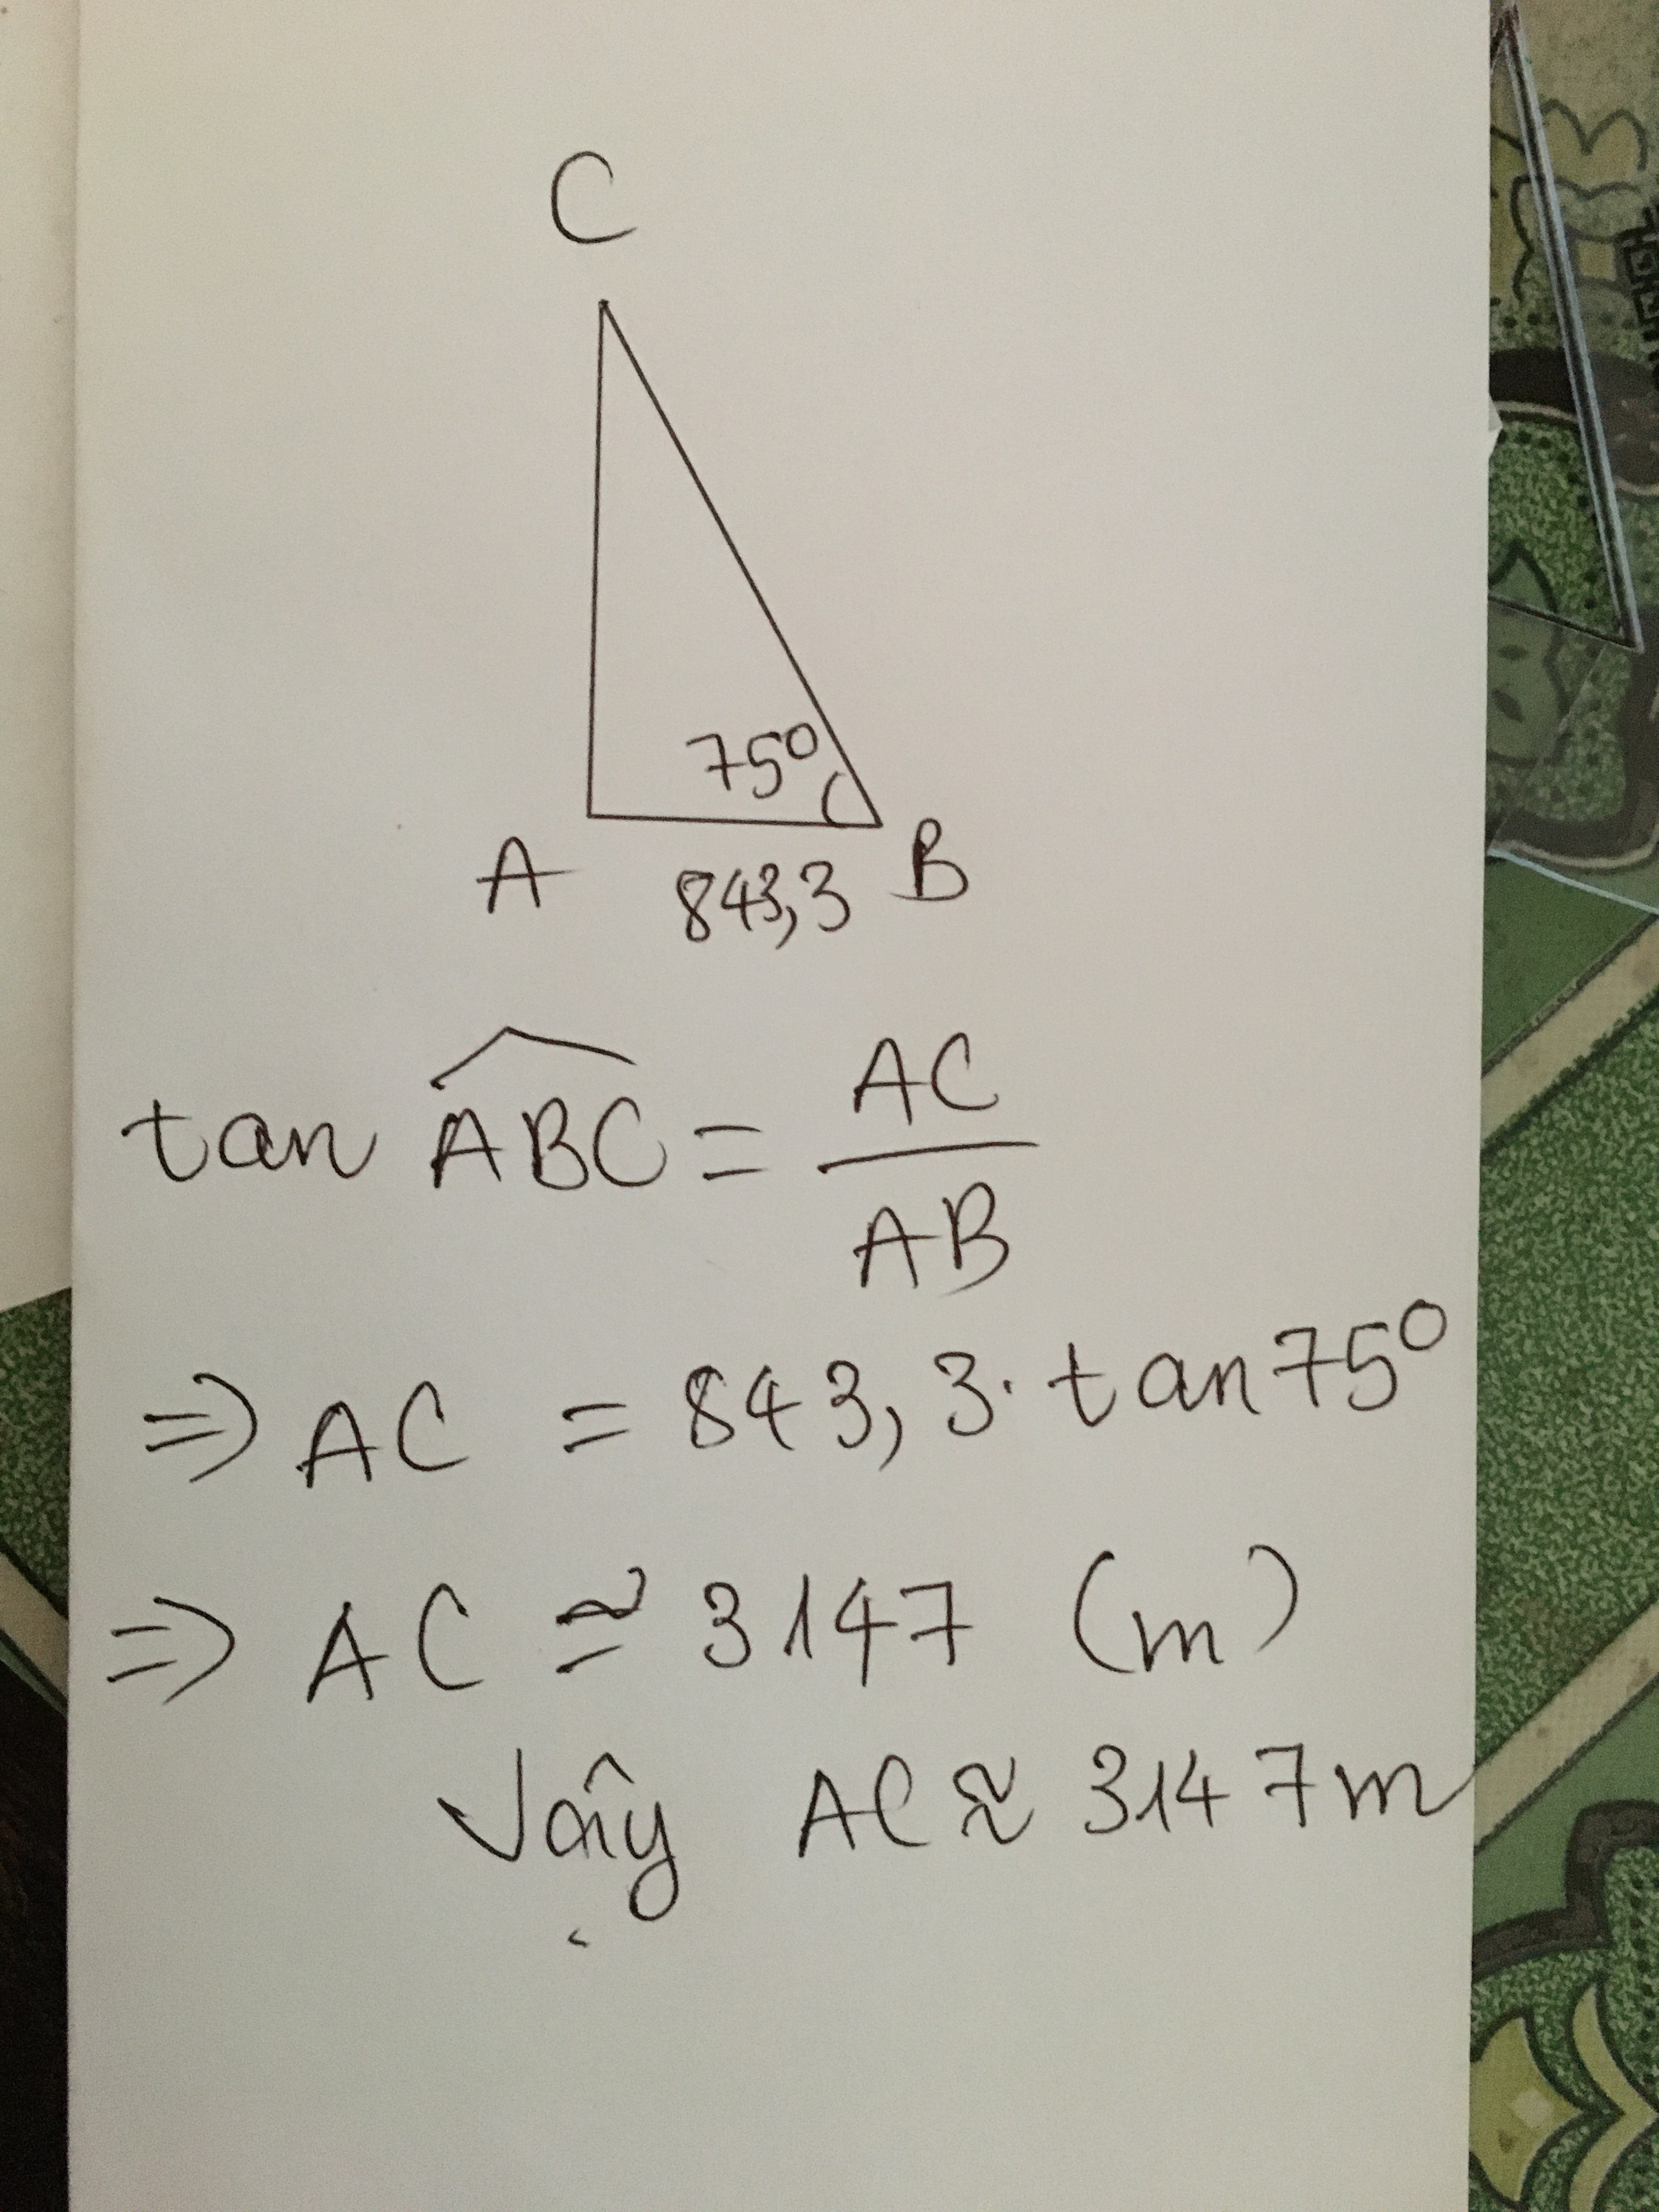 C
75°
A 843,3 B
tan ABC = AC / AB
=> AC = 843,3 . tan 75°
=> AC ≅ 3147 (m)
Vậy AC ≈ 3147m